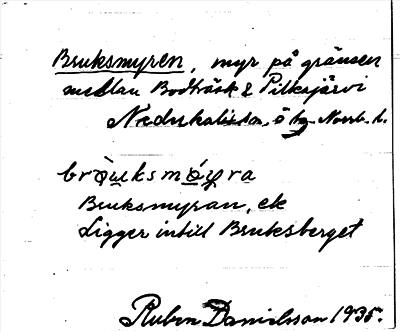 Bruksmyren, myr på gränsen
mellan Bodträsk & Pilkajärvi
Nederkalix sn, ö bg. Norrb. l.
bròu̯ksmóyra
Bruksmyran, ek
Ligger intill Bruksberget
Ruben Danielsson 1935.